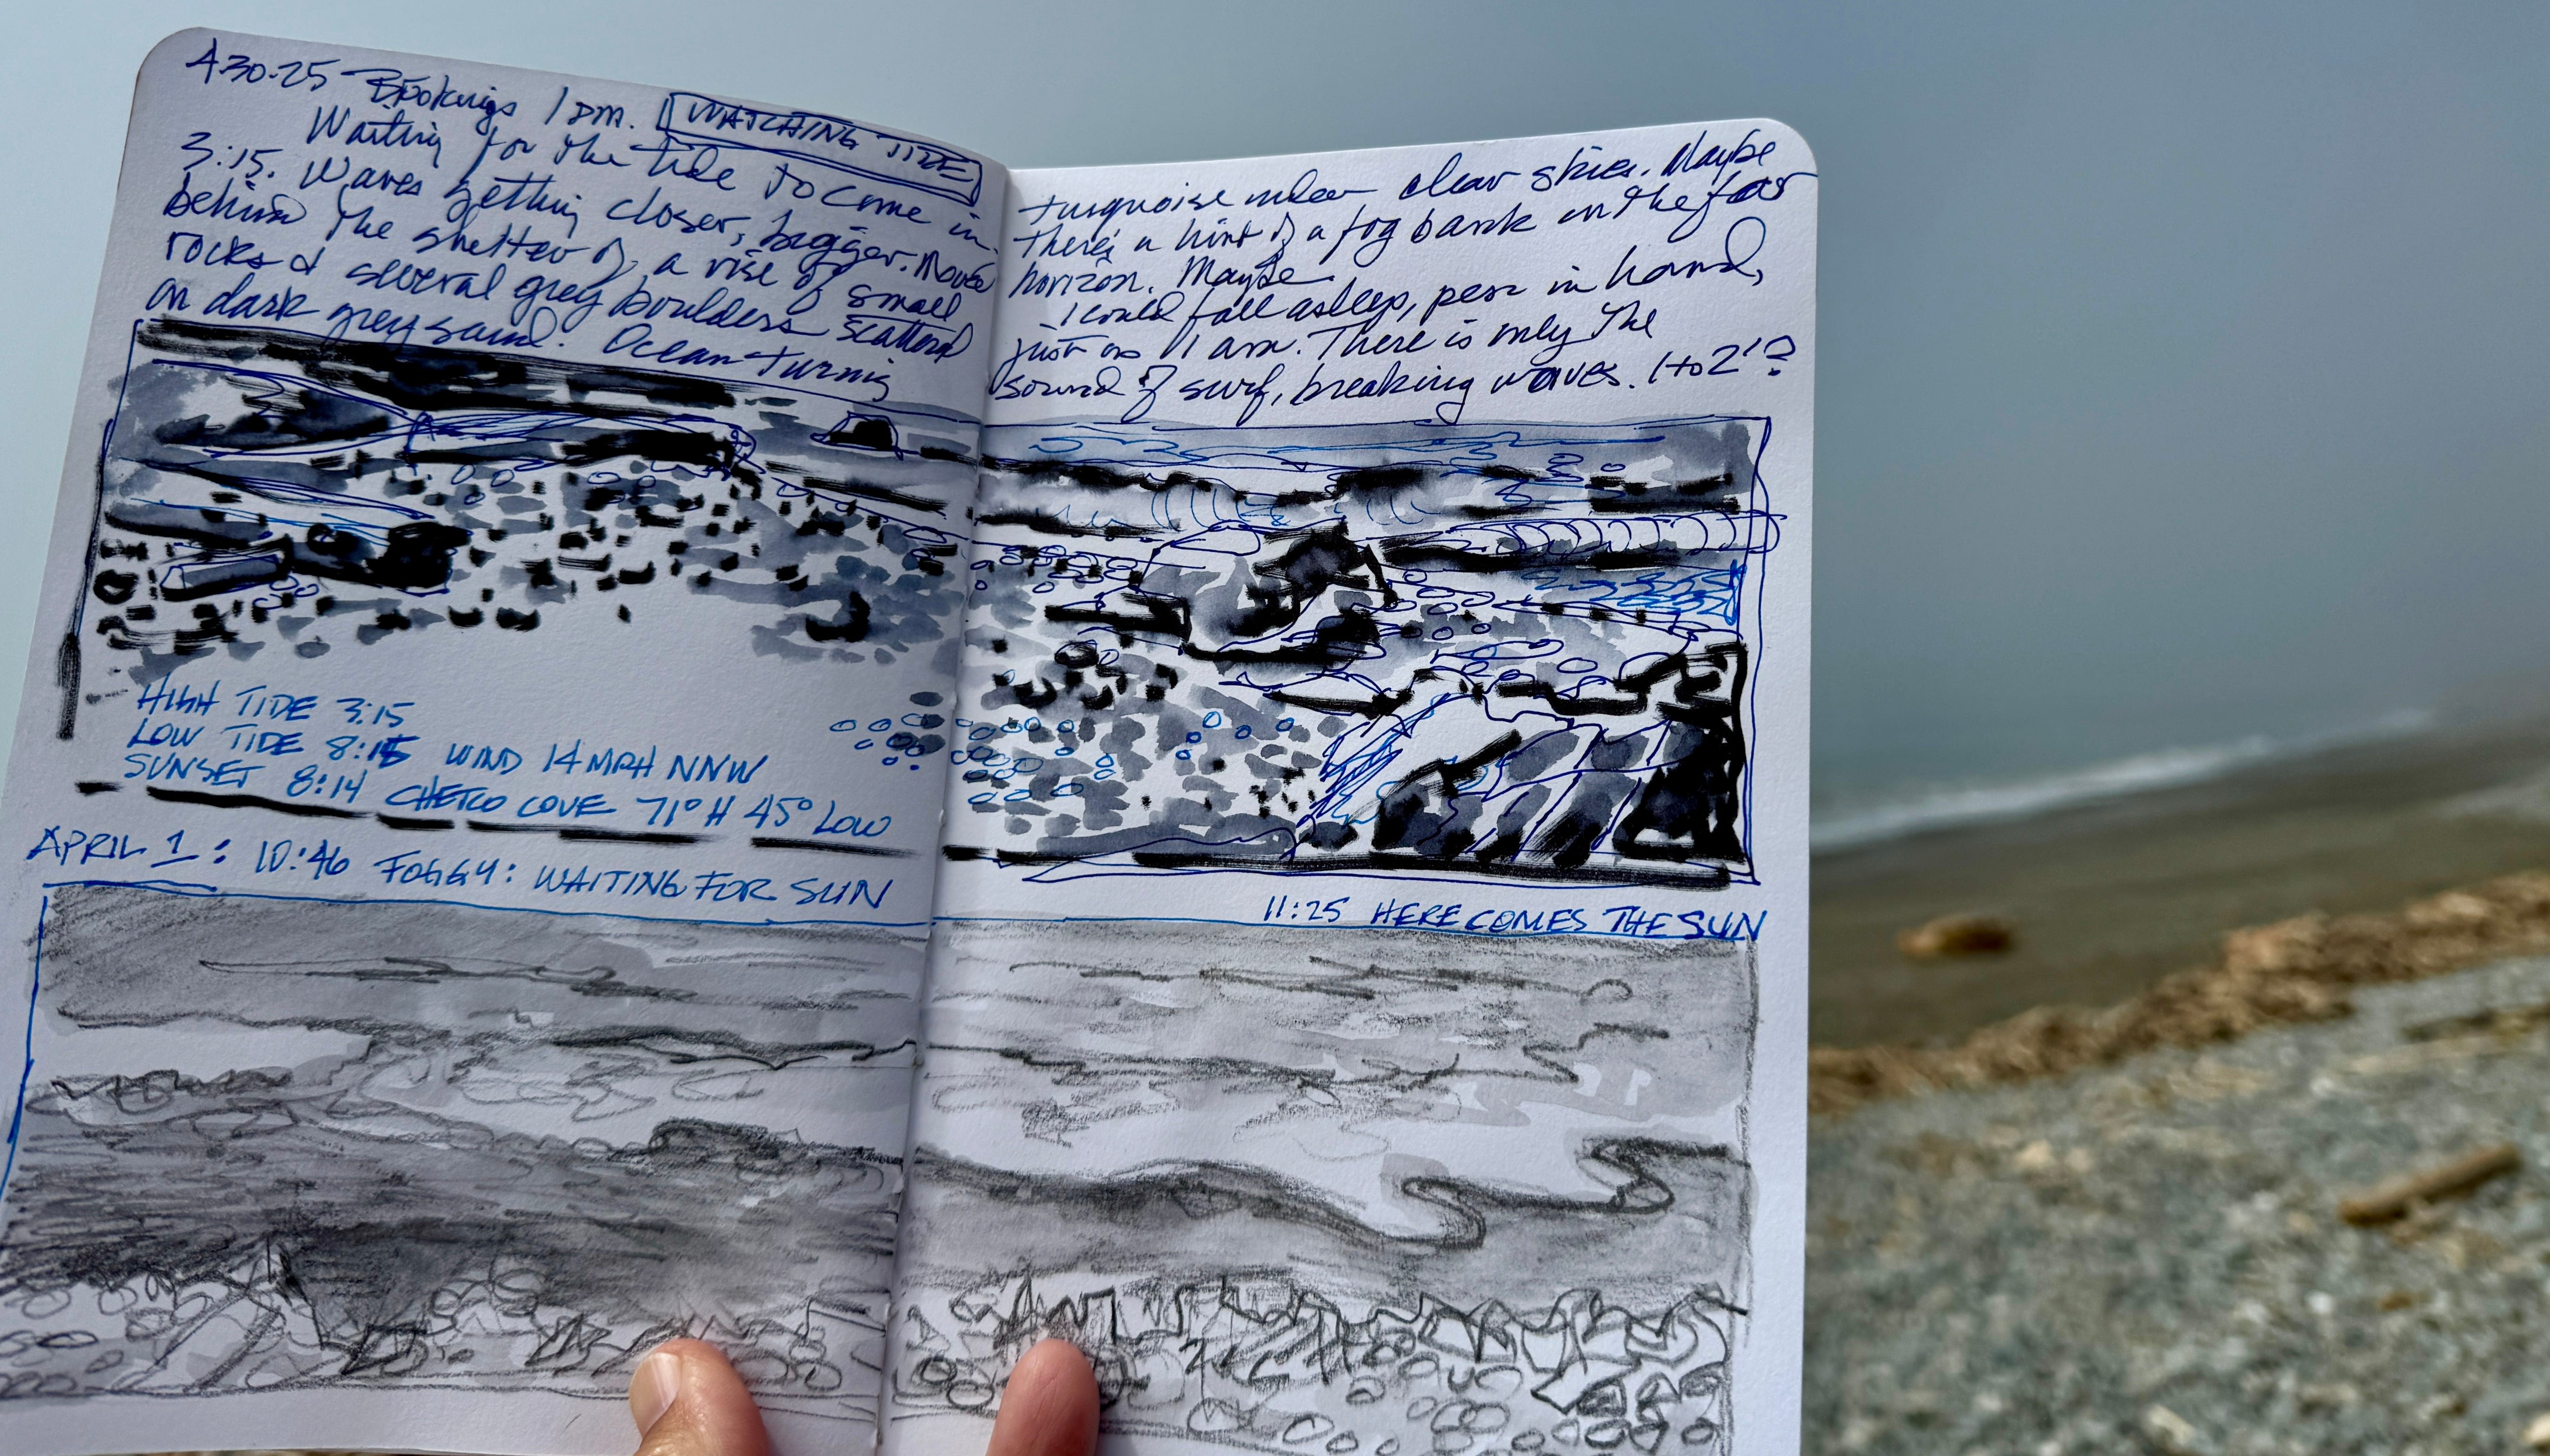 4-30-25 Brookings 1 pm. WATCHING TIDE
Waiting for the tide to come in.
3:15. Waves getting closer, bigger. Moved
behind the shelter of a rise of small
rocks & several grey boulders scattered
on dark grey sand. Ocean turning
turquoise under clear skies. Maybe
there's a hint of a fog bank on the far
horizon. Maybe
I could fall asleep, pen in hand,
just as I am. There is only the
sound of surf, breaking waves. 1 to 2'?
HIGH TIDE 3:15
LOW TIDE 8:15 WIND 14 MPH NNW
SUNSET 8:14 CHETCO COVE 71° H 45° LOW
APRIL 1: 10:46 FOGGY: WAITING FOR SUN
11:25 HERE COMES THE SUN